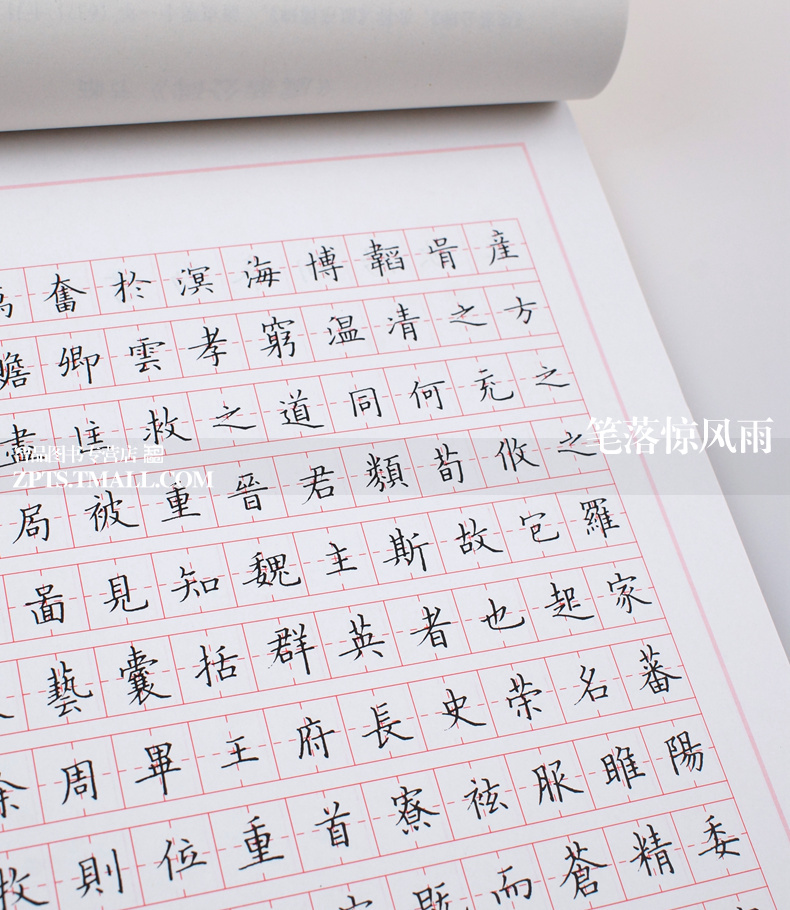 奮於溟海博韜産
瞻卿雲孝窮温凊之方
匡救之道同何充之
局被重晉君類荀攸之
啚見知魏主斯故包羅
藝囊括群英者也起家
除周畢王府長史荣名蕃
牧則位重首寮袨服睢陽
既而蒼精委
笔落惊风雨
智品图书专营店
ZPTS.TMALL.COM